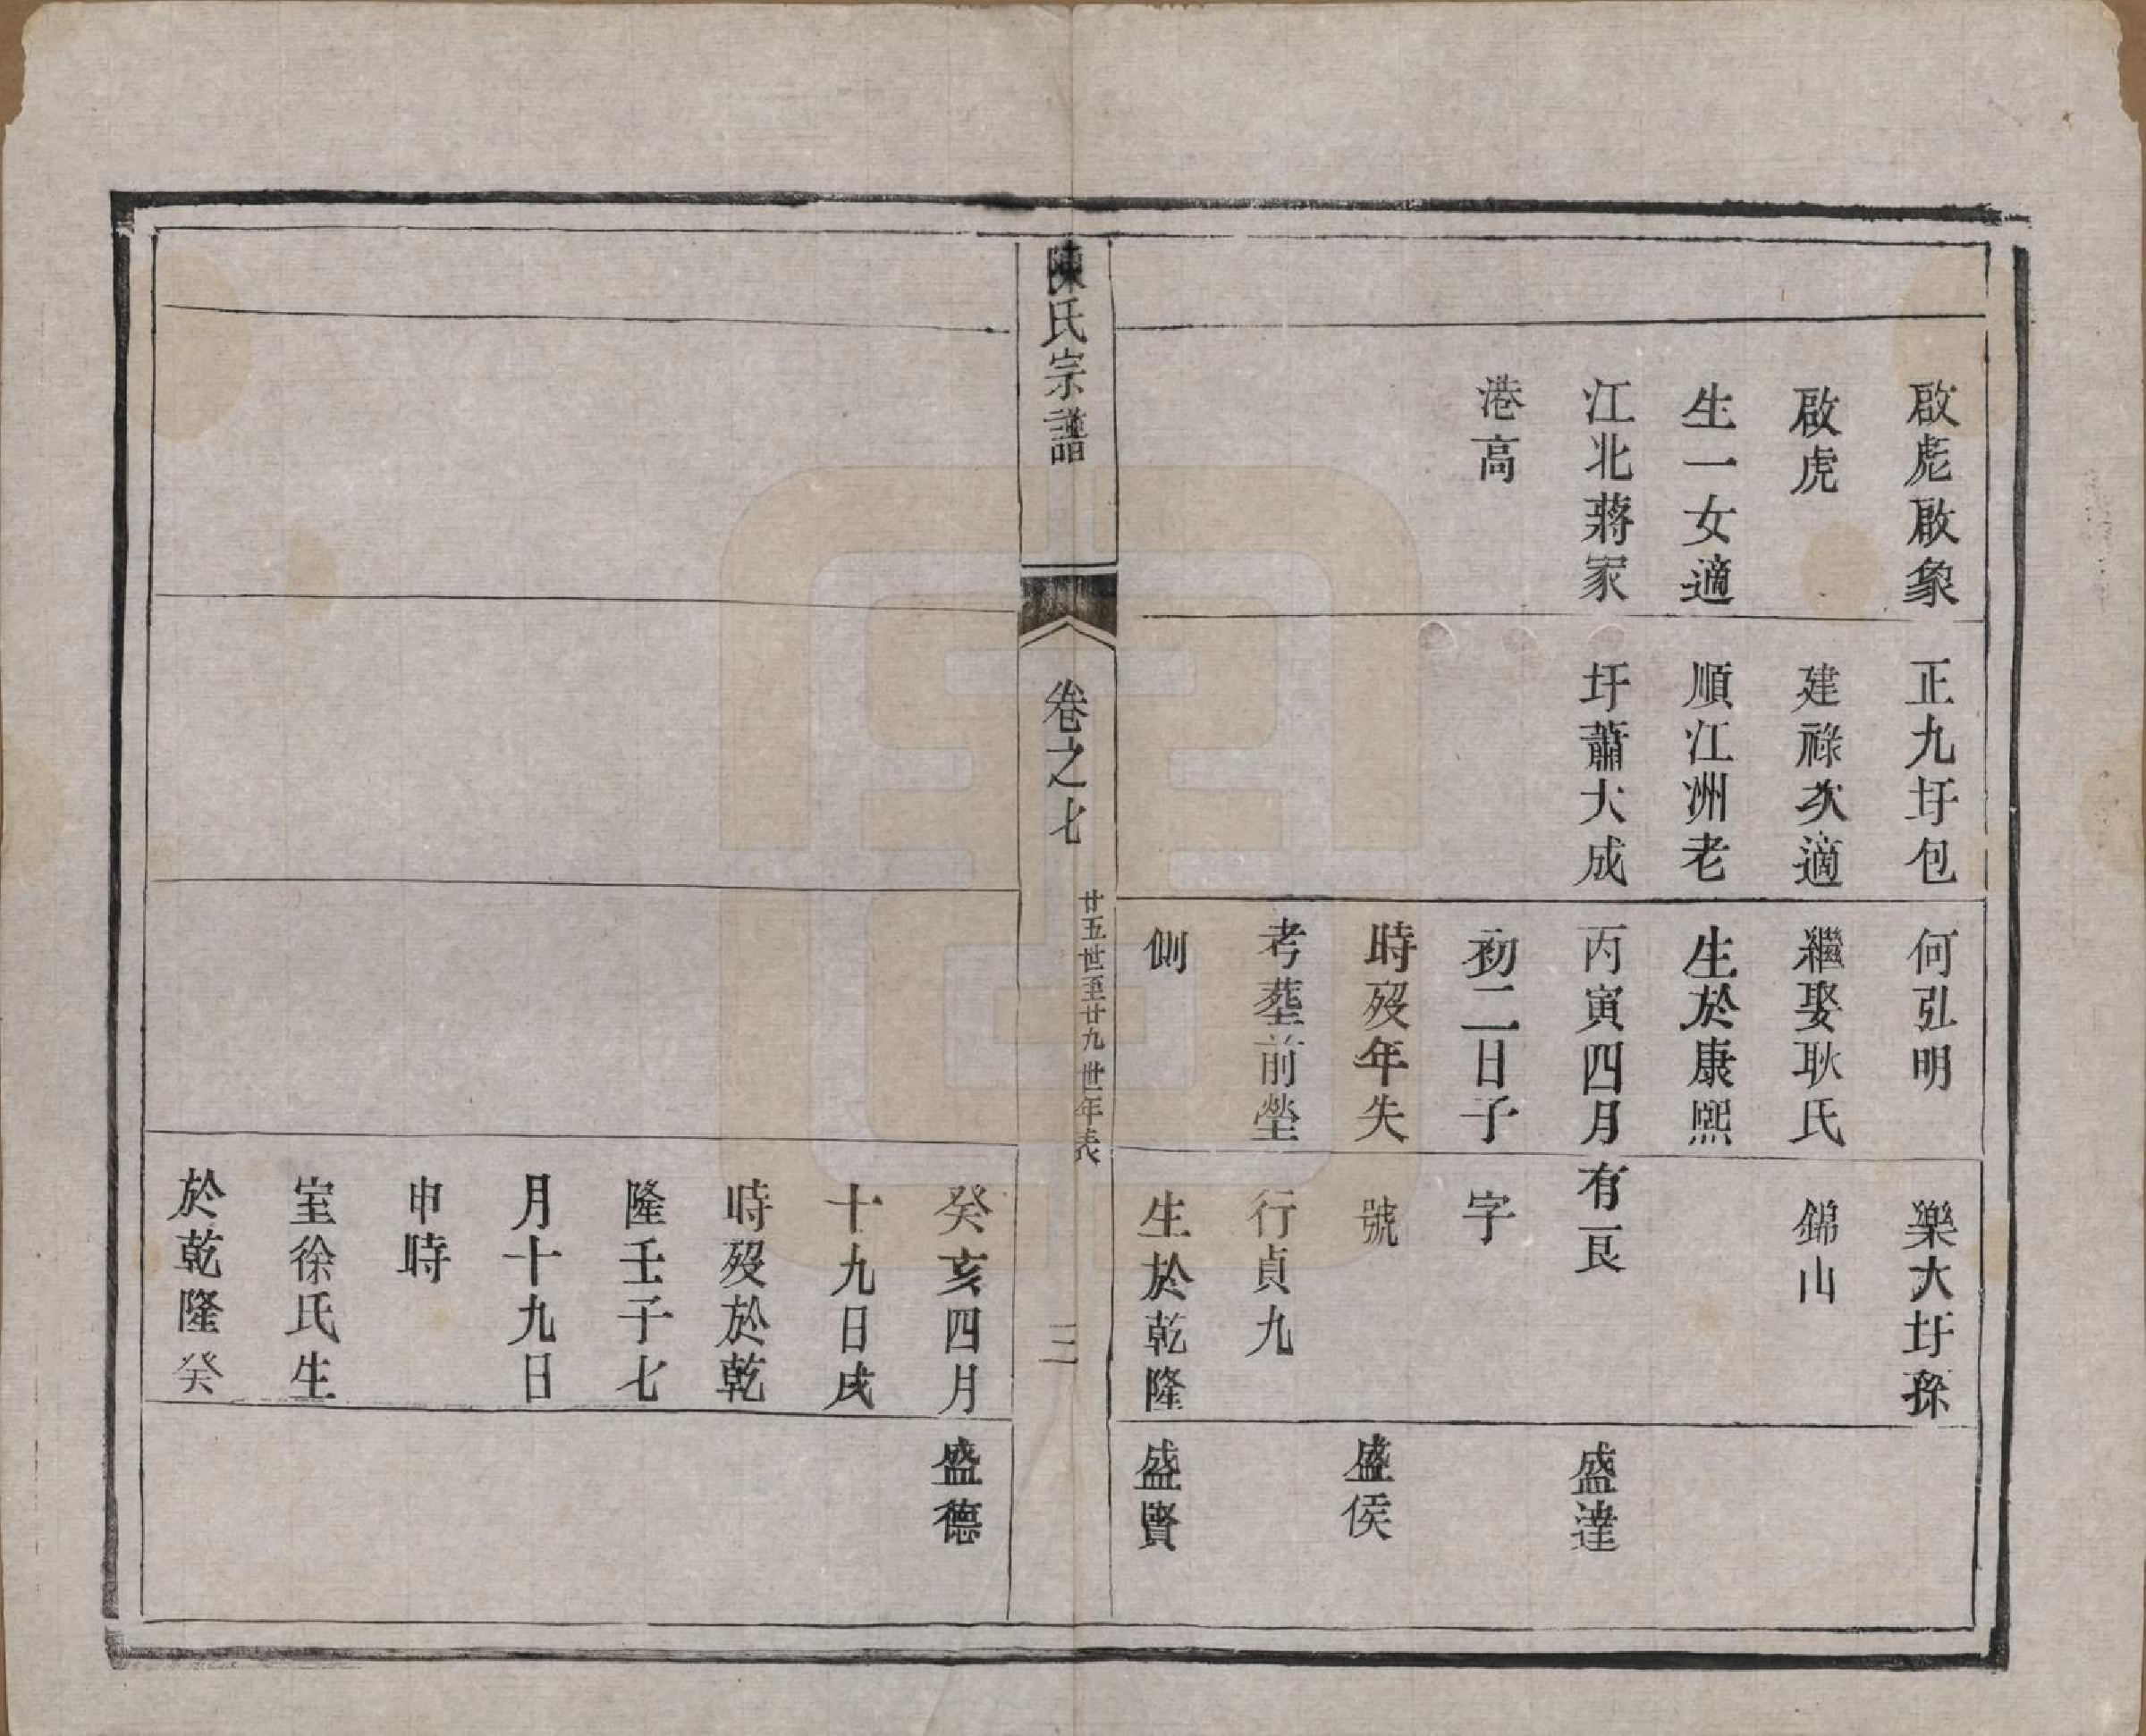 啟彪啟象
啟虎
生一女適
江北蔣家
港高
正九圩包
建祿次適
順江洲老
圩蕭大成
何弘明
繼娶耿氏
生於康熙
丙寅四月
初二日子
時歿年失
考塟前塋
側
樂大圩孫
錦山
有艮
字
號
行貞九
生於乾隆
盛達
盛侯
盛賢
陳氏宗譜
卷之七
廿五世至廿九世年表
三
癸亥四月
十九日戌
時歿於乾
隆壬子七
月十九日
申時
室徐氏生
於乾隆癸
盛德